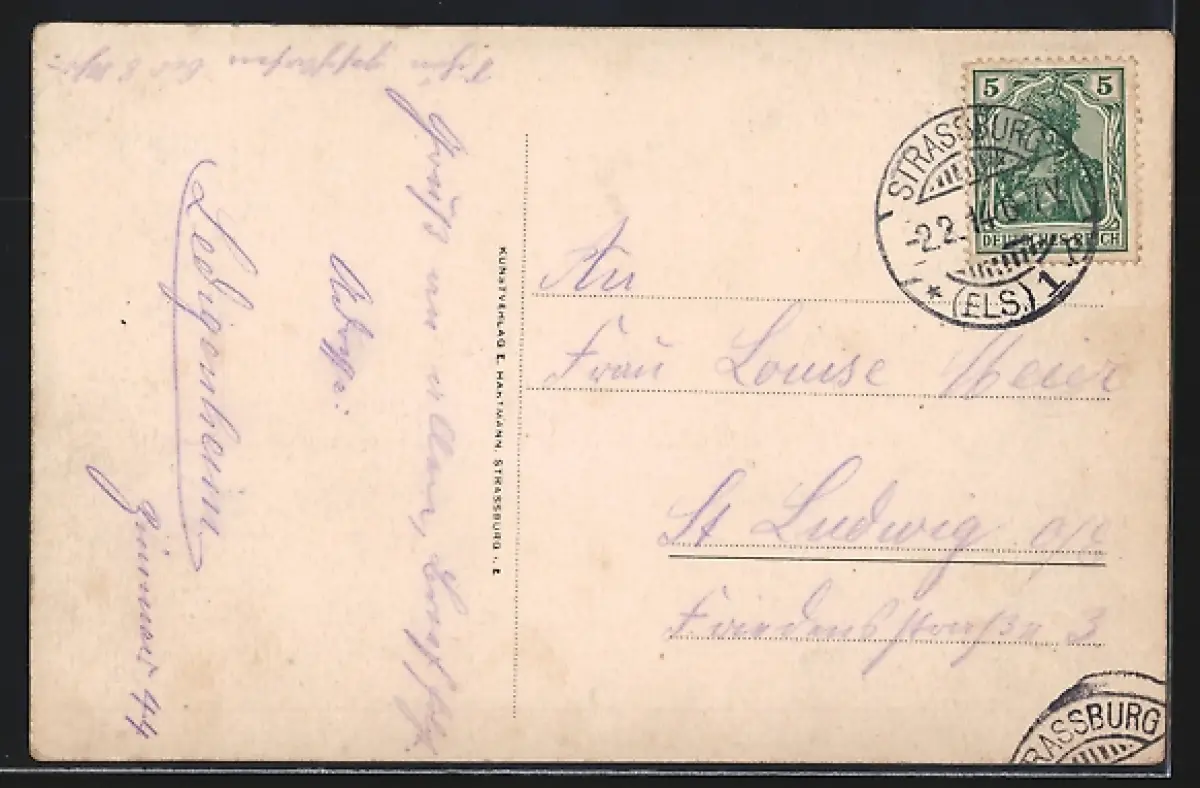 Schön geschlafen bis 8 Uhr.
Gruß an alle,
Adresse:
Ledigenheim
Zimmer 44
KUNSTVERLAG E. HARTMANN, STRASSBURG i. E.
5 5
DEUTSCHES REICH
STRASSBURG
-2.2.14. 6-7 V.
* (ELS.) 1
An
Frau Louise Meier
St Ludwig
Friedensstraße 3
STRASSBURG